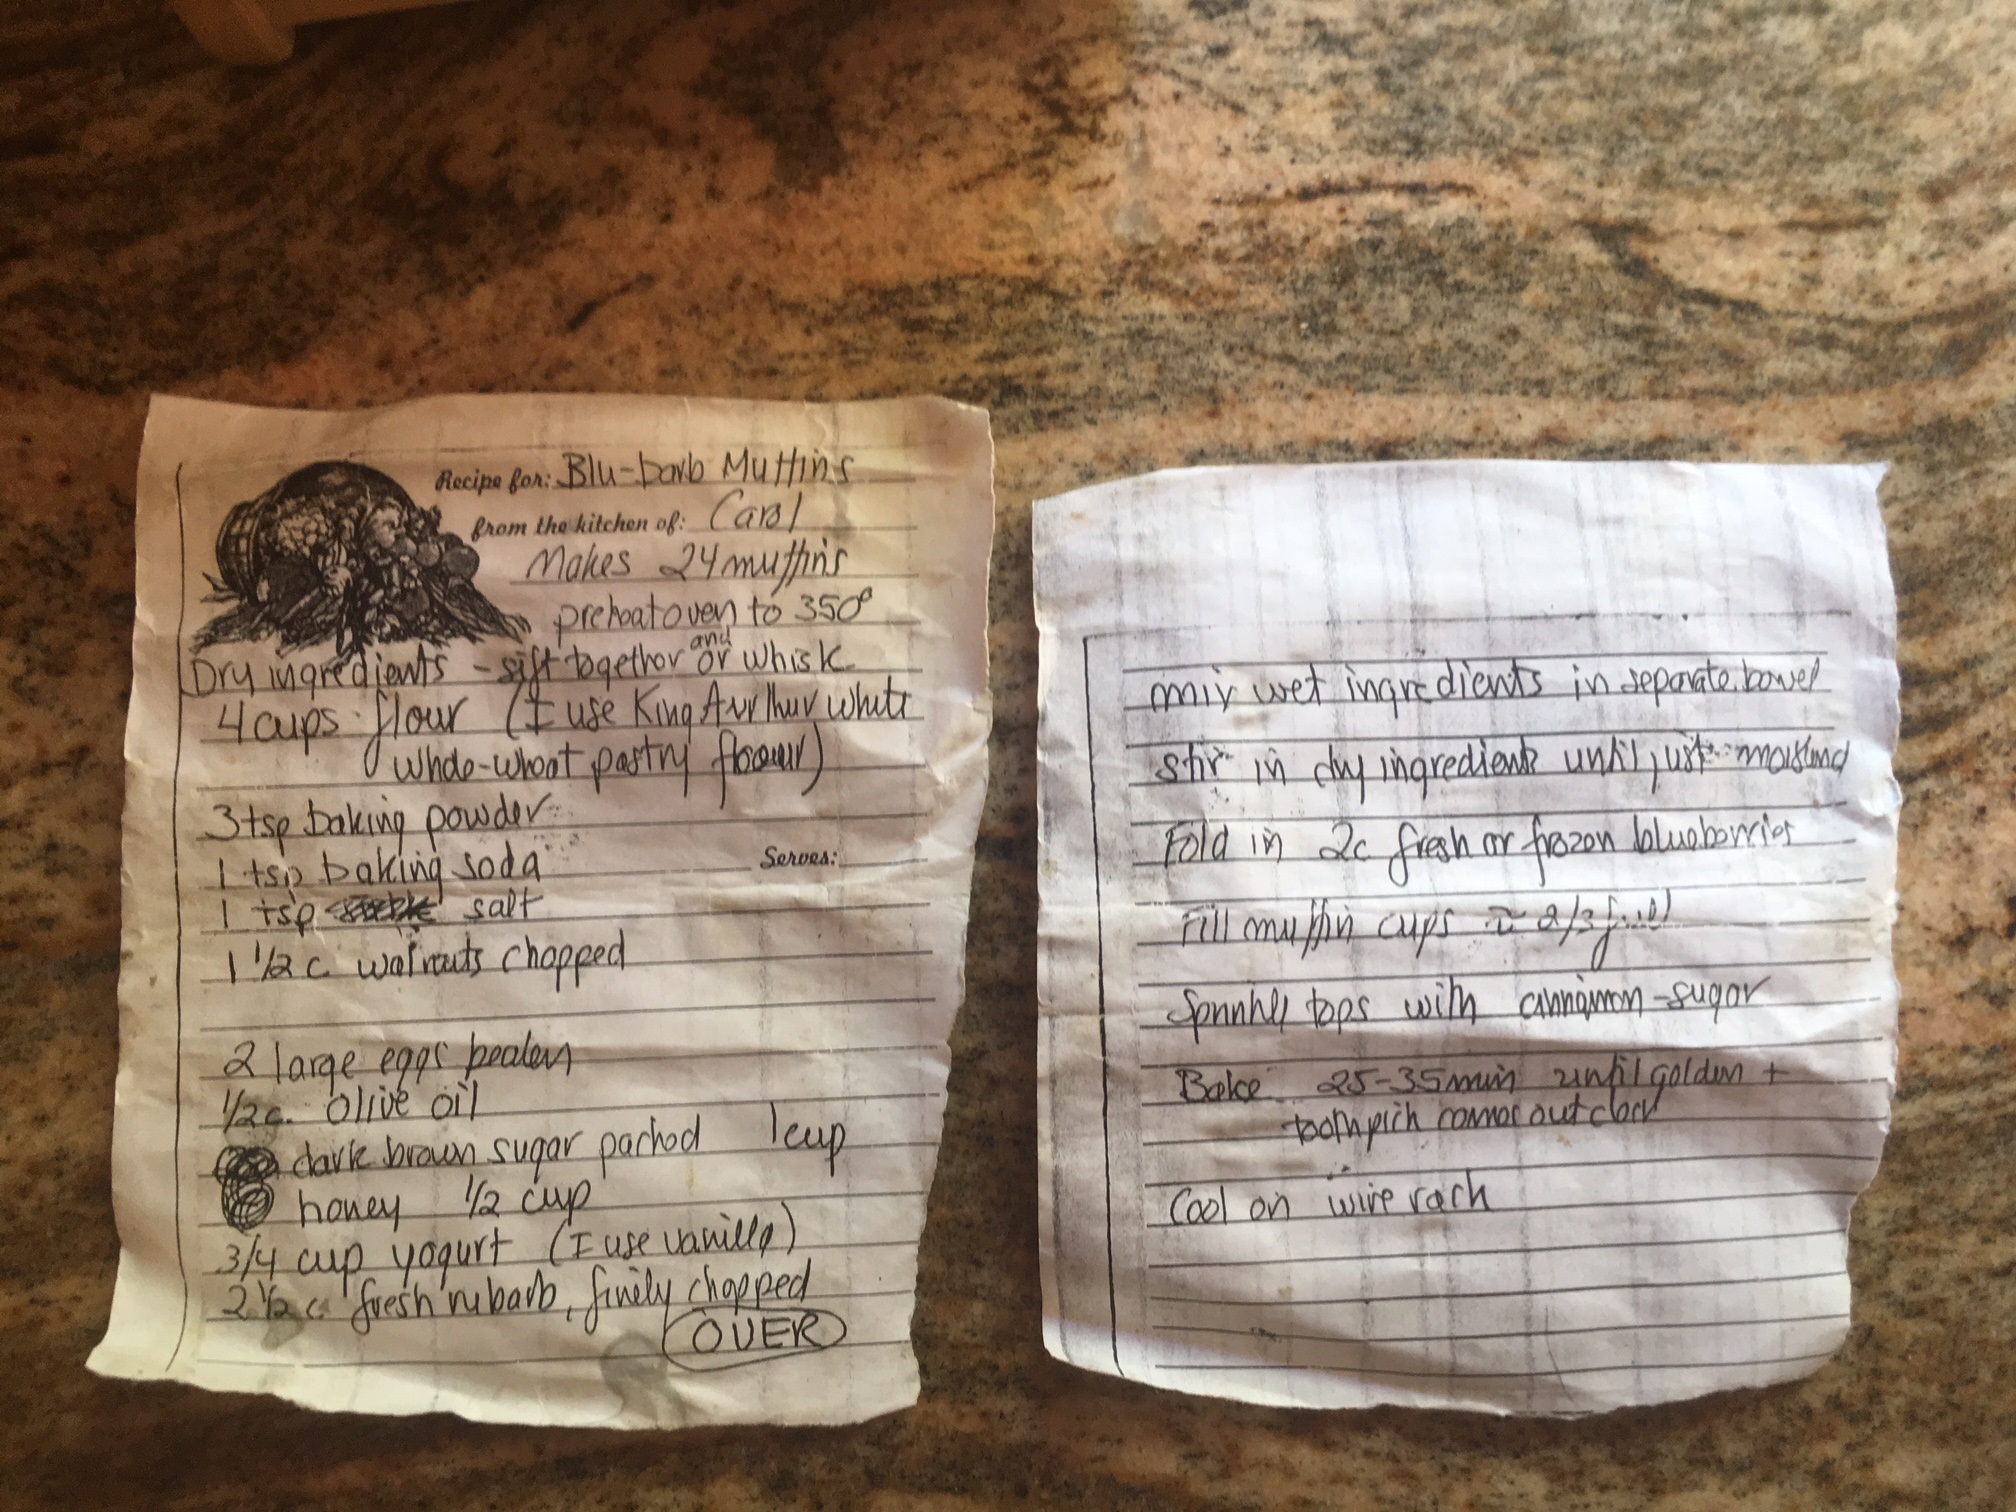 Recipe for: Blu-barb Muffins
from the kitchen of: Carol
Makes 24 muffins
preheat oven to 350°
and
Dry ingredients - sift together or whisk
4 cups flour (I use King Aurthur white
whole-wheat pastry flour)
3 tsp baking powder
1 tsp baking soda
Serves:
1 tsp salt
1 1/2 c walnuts chopped
2 large eggs beaten
1/2 c. olive oil
dark brown sugar packed 1 cup
honey 1/2 cup
3/4 cup yogurt (I use vanilla)
2 1/2 c fresh rubarb, finely chopped
OVER
mix wet ingredients in separate bowel
stir in dry ingredients until just moistend
Fold in 2c fresh or frozen blueberries
Fill muffin cups ≈ 2/3 full
Sprinkle tops with cinnamon-sugar
Bake 25-35 min until golden +
toothpick comes out clean
Cool on wire rack